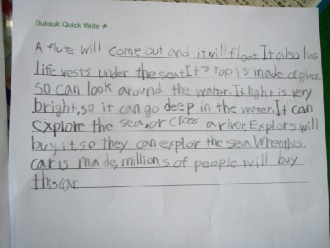 Sutsuk Quick Write
A flute will come out and it will float. It also has
life vests under the seat. It's top is made of glass.
so can look around the water. It light is very
bright, so it can go deep in the water. It can
explore the sea or cross a river. Explors will
buy it so they can explor the sea. When this
car is made, millions of people will buy
this car.